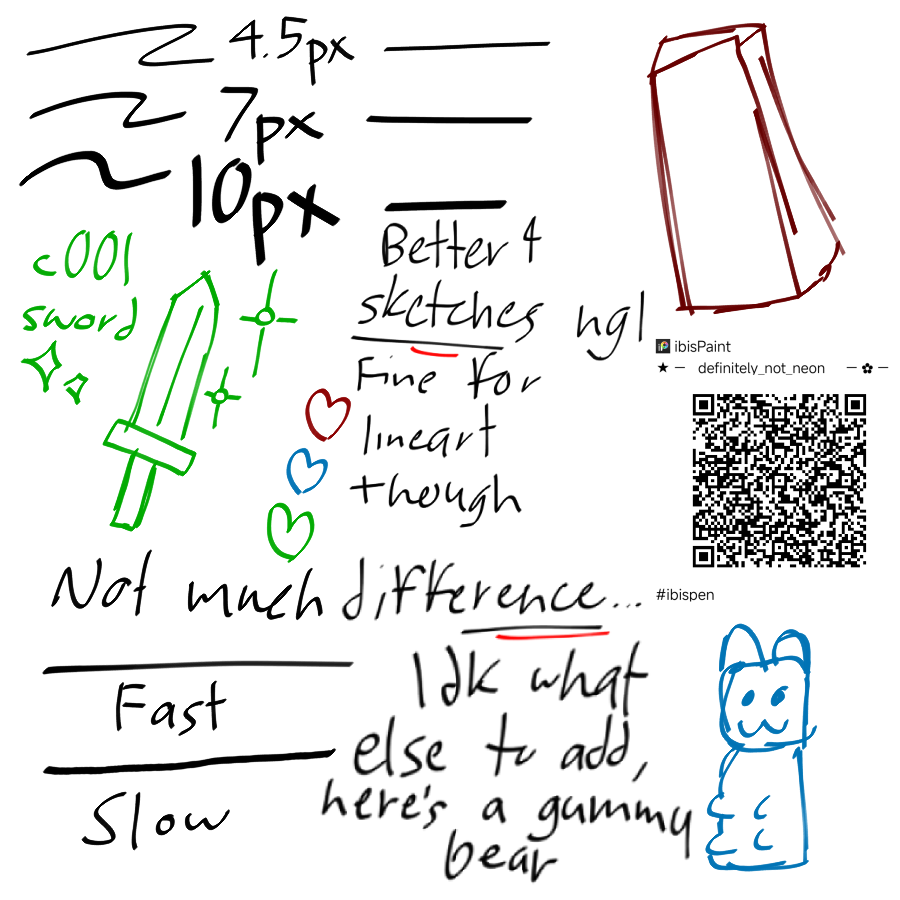 4.5px
7px
10px
c001
sword
Better 4
sketches ngl
Fine for
lineart
though
ibisPaint
★ — definitely_not_neon — ✿ —
#ibispen
Not much difference...
Fast
Slow
Idk what
else to add,
here's a gummy
bear